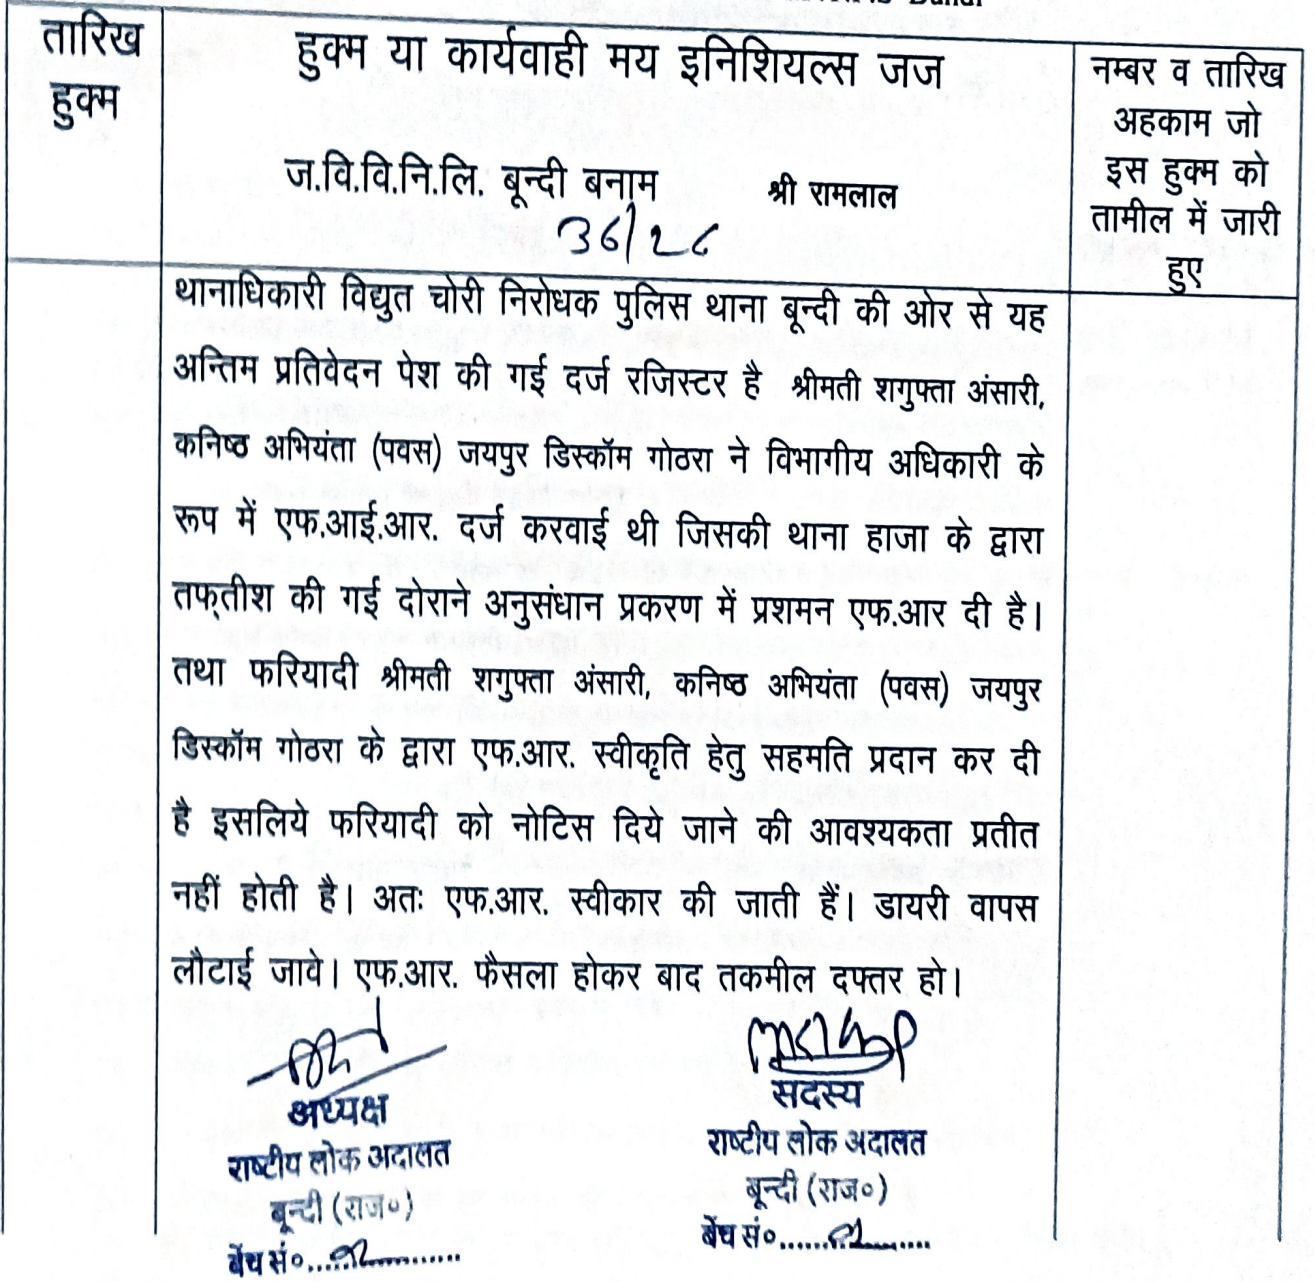 तारिख हुक्म
हुक्म या कार्यवाही मय इनिशियल्स जज
ज.वि.वि.नि.लि. बून्दी बनाम श्री रामलाल
36/26
नम्बर व तारिख
अहकाम जो
इस हुक्म को
तामील में जारी
हुए
थानाधिकारी विद्युत चोरी निरोधक पुलिस थाना बून्दी की ओर से यह
अन्तिम प्रतिवेदन पेश की गई दर्ज रजिस्टर है श्रीमती शगुफ्ता अंसारी,
कनिष्ठ अभियंता (पवस) जयपुर डिस्कॉम गोठरा ने विभागीय अधिकारी के
रूप में एफ.आई.आर. दर्ज करवाई थी जिसकी थाना हाजा के द्वारा
तफ्तीश की गई दोराने अनुसंधान प्रकरण में प्रशमन एफ.आर दी है।
तथा फरियादी श्रीमती शगुफ्ता अंसारी, कनिष्ठ अभियंता (पवस) जयपुर
डिस्कॉम गोठरा के द्वारा एफ.आर. स्वीकृति हेतु सहमति प्रदान कर दी
है इसलिये फरियादी को नोटिस दिये जाने की आवश्यकता प्रतीत
नहीं होती है। अतः एफ.आर. स्वीकार की जाती हैं। डायरी वापस
लौटाई जावे। एफ.आर. फैसला होकर बाद तकमील दफ्तर हो।
अध्यक्ष
राष्टीय लोक अदालत
बून्दी (राज०)
बेंच सं०......02............
सदस्य
राष्टीय लोक अदालत
बून्दी (राज०)
बेंच सं०.......02.......